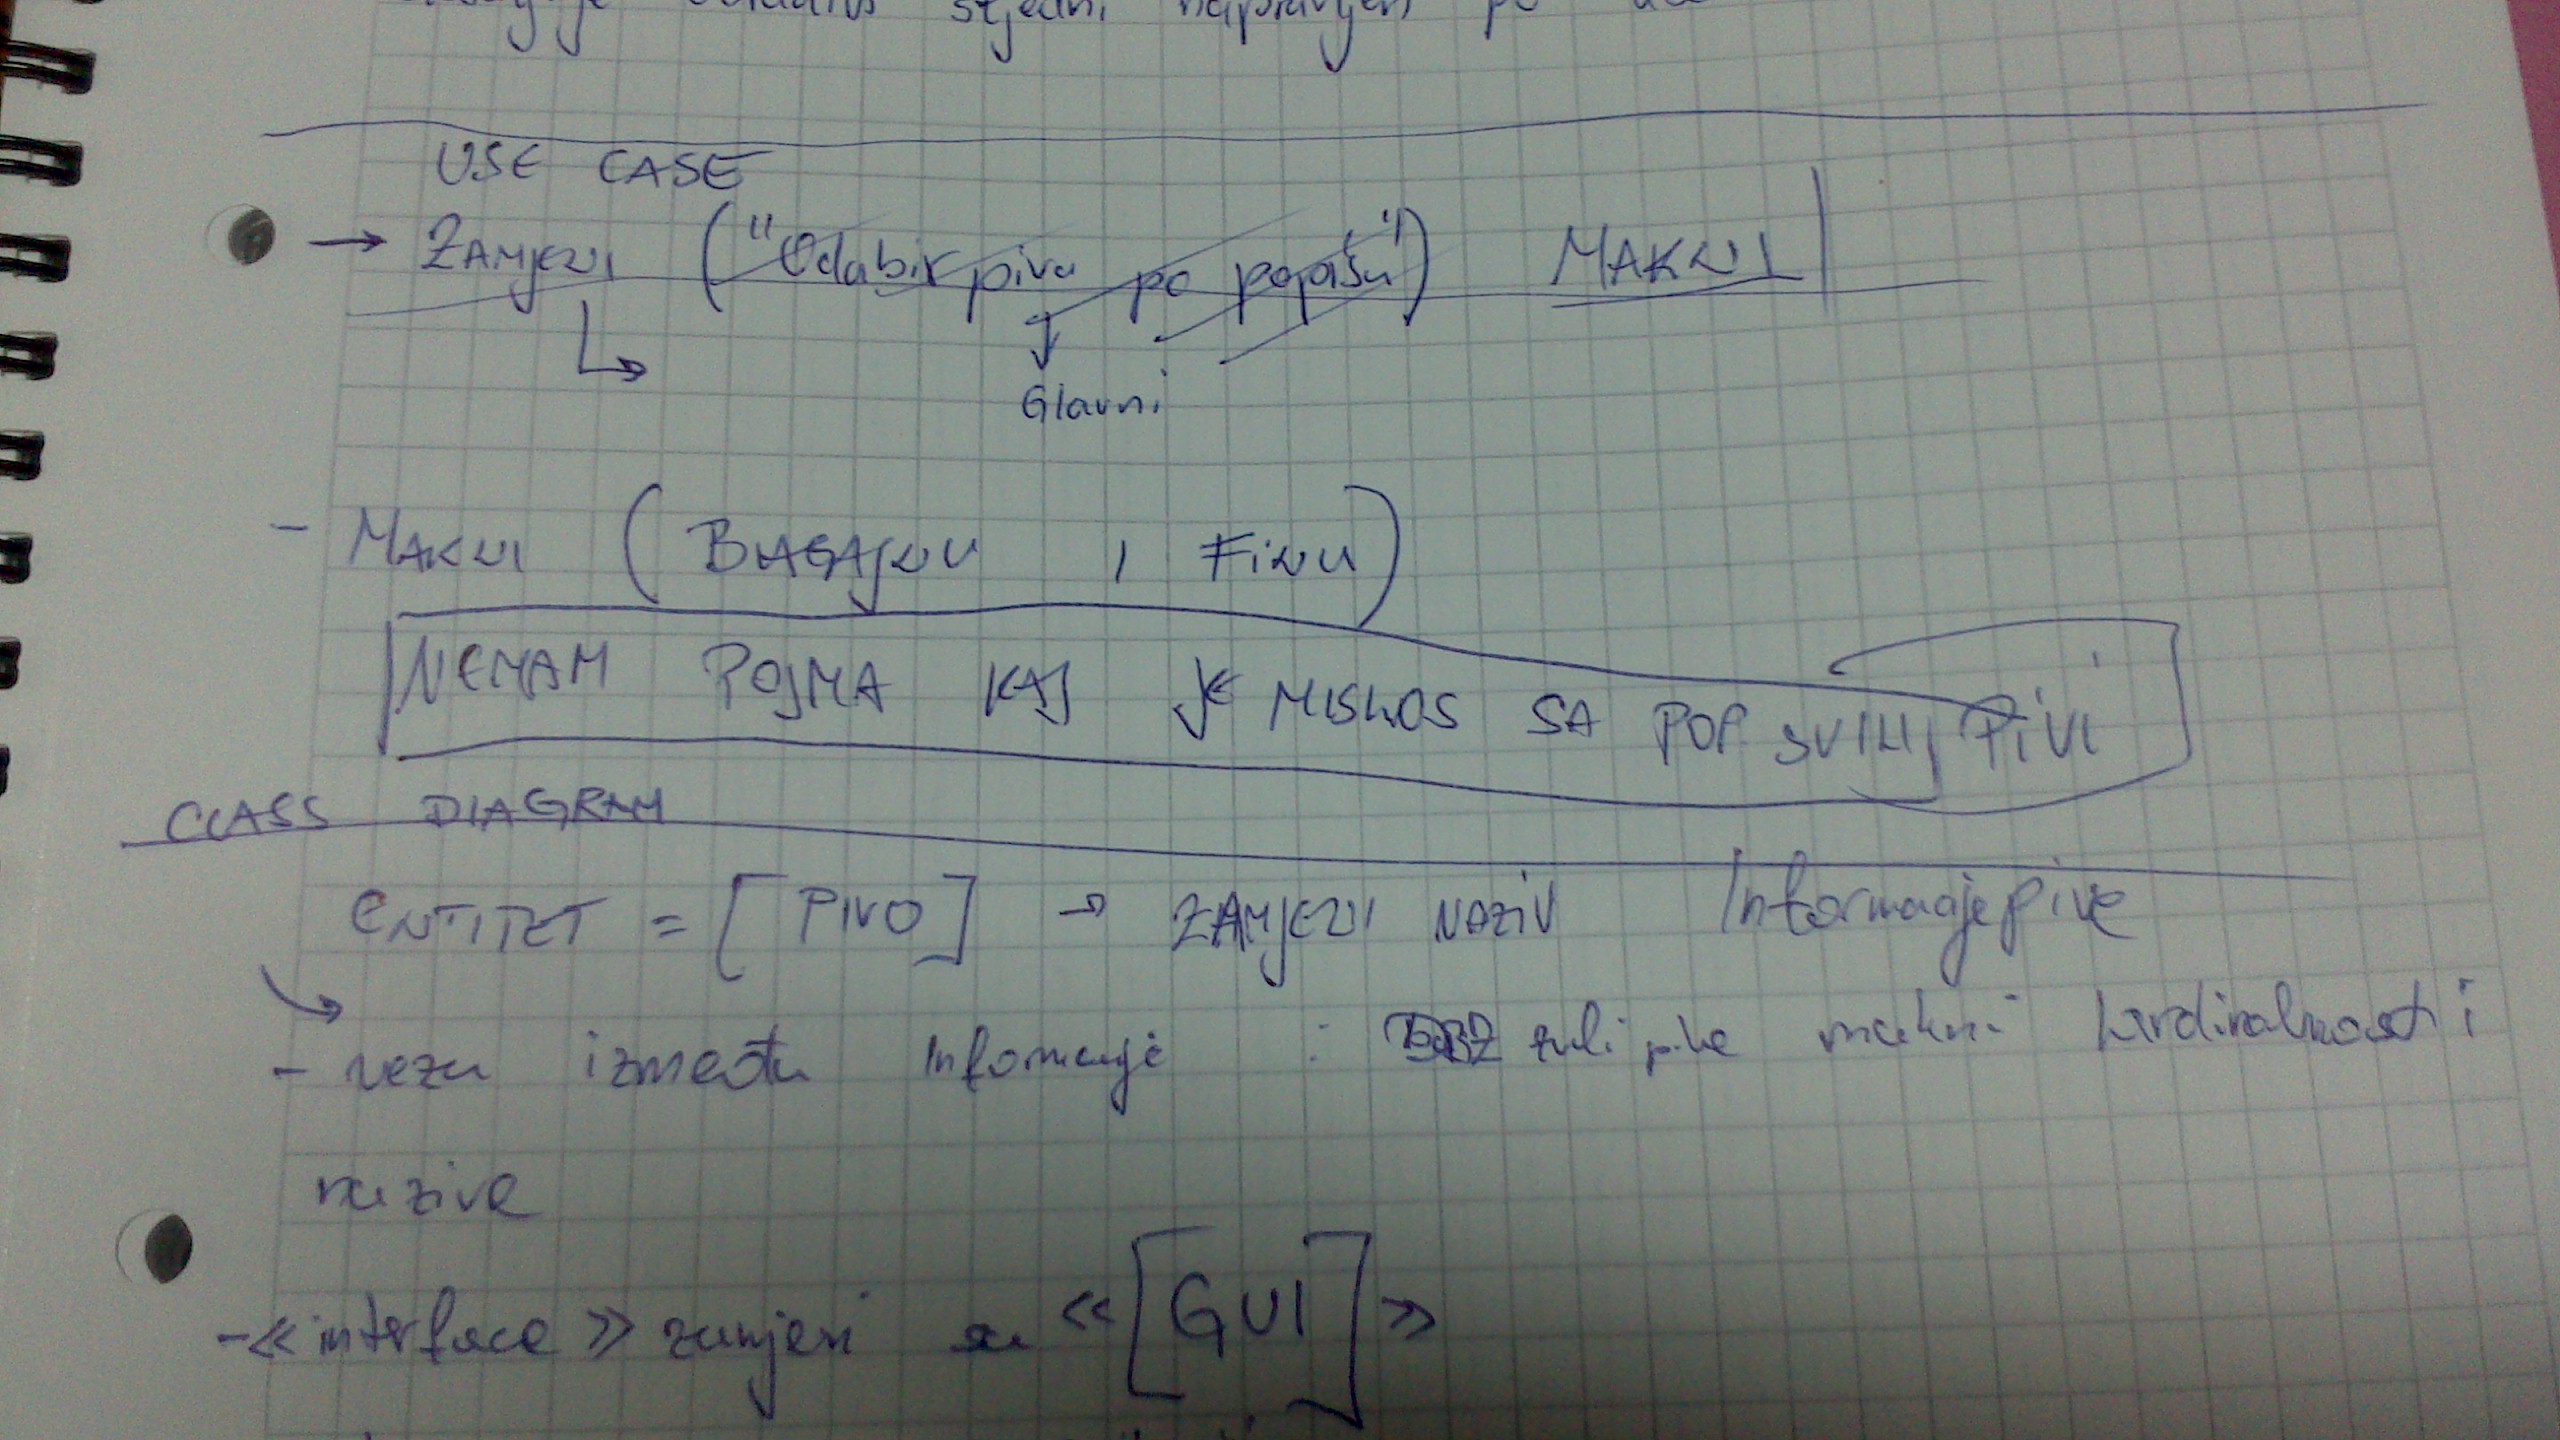 slijedni napravljen po
USE CASE
→ ZAMJENI ("Odabir piva po popisu") MAKNI
Glavni
- MAKNI (BLAGAJNU I FINU)
NEMAM POJMA KAJ JE MISLIOS SA POP SVIH PIVI
CLASS DIAGRAM
ENTITET = [PIVO] → ZAMJENI NAZIV Informacije pive
- veza između Informacije i makni kardinalnosti
nazive
- <<interface>> zamjeni sa <<[GUI]>>